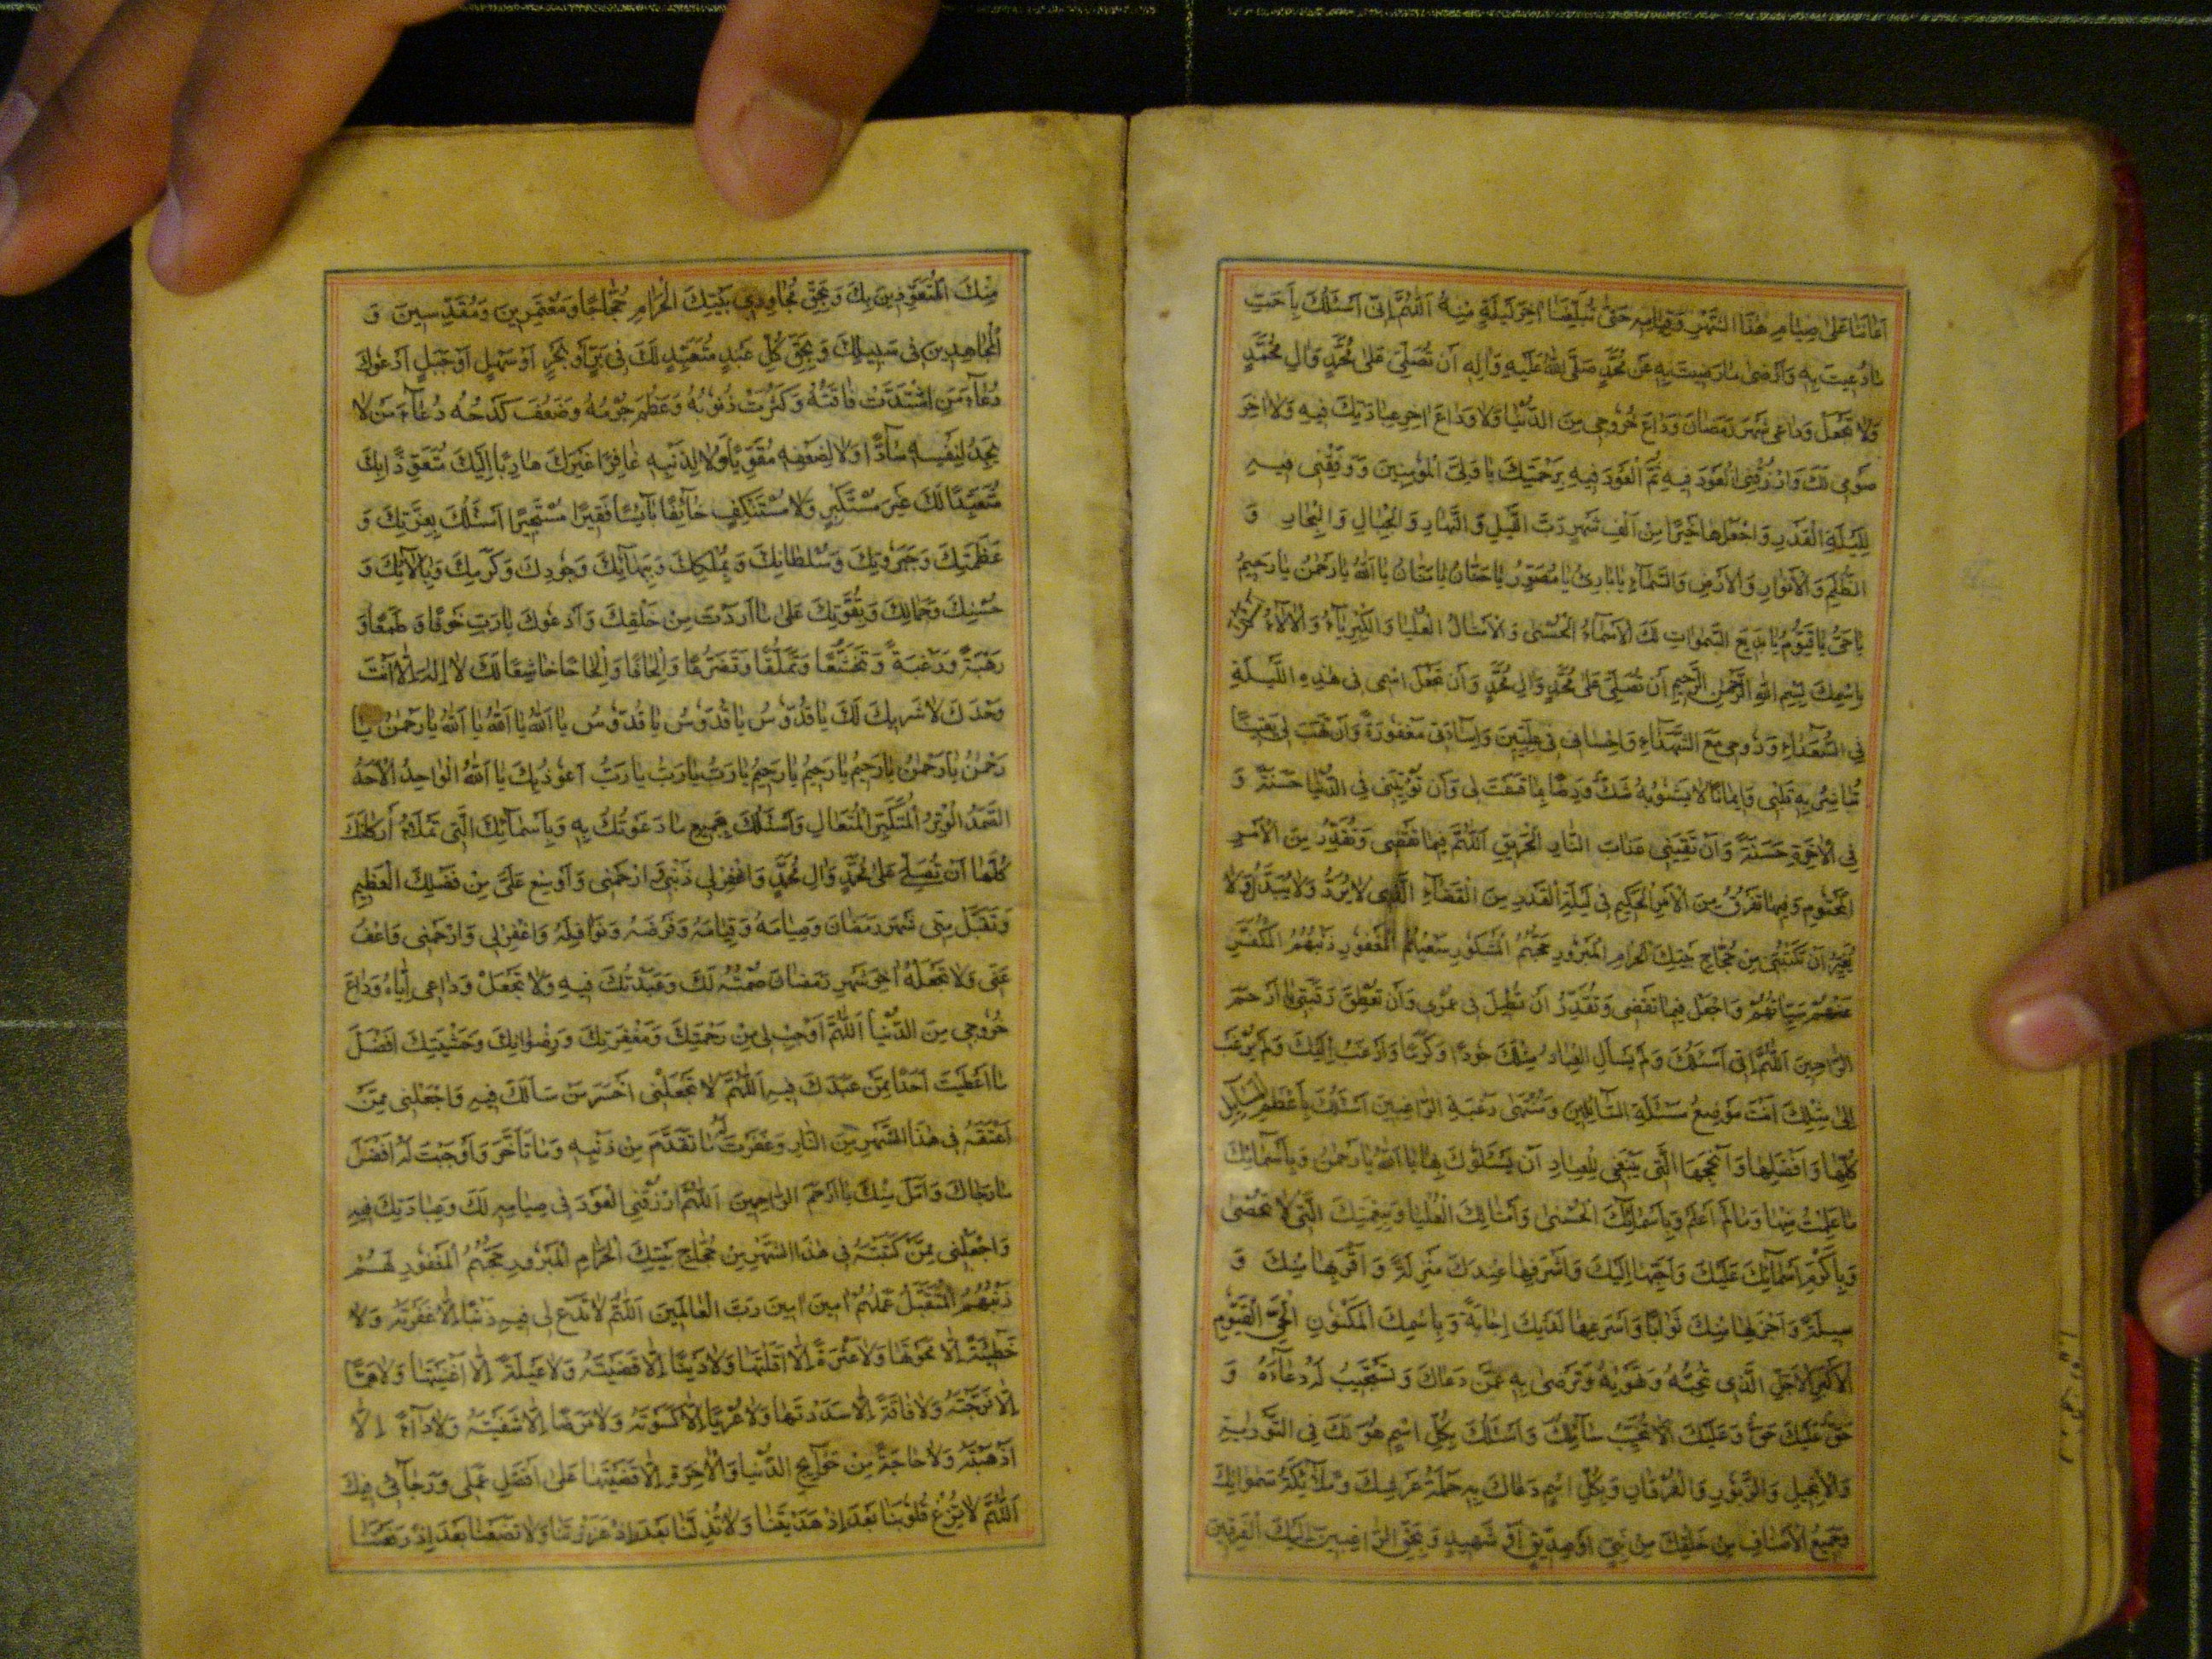 اَعَانَنَا عَلٰى صِيَامِ هٰذَا الشَّهْرِ وَقِيَامِهِ حَتّٰى تُبَلِّغَنَا اٰخِرَ لَيْلَةٍ مِنْهُ اَللّٰهُمَّ اِنّى اَسْئَلُكَ بِاَحَبِّ
مَادُعِيتَ بِهِ وَاَرْضٰى مَارَضِيتَ بِهِ عَنْ مُحَمَّدٍ صَلَّى اللّٰهُ عَلَيْهِ وَاٰلِهِ اَنْ تُصَلِّىَ عَلٰى مُحَمَّدٍ وَاٰلِ مُحَمَّدٍ
وَلَا تَجْعَلْ وَدَاعى شَهْرَ رَمَضَانَ وَدَاعَ خُرُوجى مِنَ الدُّنْيَا وَلَا وَدَاعَ اٰخِرِ عِبَادَتِكَ فِيهِ وَلَا اٰخِرَ
صَوْمى لَكَ وَارْزُقْنِى الْعَوْدَ فِيهِ ثُمَّ الْعَوْدَ فِيهِ بِرَحْمَتِكَ يَا وَلِىَّ الْمُؤْمِنِينَ وَوَفِّقْنى فِيهِ
لِلَيْلَةِ الْقَدْرِ وَاجْعَلْهَا خَيْرًا مِنْ اَلْفِ شَهْرٍ رَبَّ اللَّيْلِ وَالنَّهَارِ وَالْجِبَالِ وَالْبِحَارِ وَ
الظُّلَمِ وَالْاَنْوَارِ وَالْاَرْضِ وَالسَّمَاءِ يَا بَارِئُ يَا مُصَوِّرُ يَا حَنَّانُ يَا مَنَّانُ يَا اَللّٰهُ يَا رَحْمٰنُ يَا رَحِيمُ
يَا حَىُّ يَا قَيُّومُ يَا بَدِيعَ السَّمٰوَاتِ لَكَ الْاَسْمَاءُ الْحُسْنٰى وَالْاَمْثَالُ الْعُلْيَا وَالْكِبْرِيَاءُ وَالْاٰلَاءُ
بِاسْمِكَ بِسْمِ اللّٰهِ الرَّحْمٰنِ الرَّحِيمِ اَنْ تُصَلِّىَ عَلٰى مُحَمَّدٍ وَاٰلِ مُحَمَّدٍ وَاَنْ تَجْعَلَ اسْمى فى هٰذِهِ اللَّيْلَةِ
فِى السُّعَدَاءِ وَرُوحى مَعَ الشُّهَدَاءِ وَاِحْسَانى فى عِلِّيِّينَ وَاِسَاءَتى مَغْفُورَةً وَاَنْ تَهَبَ لى يَقِينًا
تُبَاشِرُ بِهِ قَلْبى وَاِيمَانًا لَا يَشُوبُهُ شَكٌّ وَرِضًا بِمَا قَسَمْتَ لى وَاَنْ تُؤْتِيَنى فِى الدُّنْيَا حَسَنَةً وَ
فِى الْاٰخِرَةِ حَسَنَةً وَاَنْ تَقِيَنى عَذَابَ النَّارِ الْحَرِيقِ اَللّٰهُمَّ فِيمَا تَقْضى وَتُقَدِّرُ مِنَ الْاَمْرِ
الْمَحْتُومِ وَفِيمَا تَفْرُقُ مِنَ الْاَمْرِ الْحَكِيمِ فى لَيْلَةِ الْقَدْرِ مِنَ الْقَضَاءِ الَّذى لَا يُرَدُّ وَلَا يُبَدَّلُ وَلَا
يُغَيَّرُ اَنْ تَكْتُبَنى مِنْ حُجَّاجِ بَيْتِكَ الْحَرَامِ الْمَبْرُورِ حَجُّهُمُ الْمَشْكُورِ سَعْيُهُمُ الْمَغْفُورِ ذَنْبُهُمُ الْمُكَفَّرِ
عَنْهُمْ سَيِّئَاتُهُمْ وَاجْعَلْ فِيمَا تَقْضى وَتُقَدِّرُ اَنْ تُطِيلَ لى عُمْرى وَاَنْ تُعْتِقَ رَقَبَتى يَا اَرْحَمَ
الرَّاحِمِينَ اَللّٰهُمَّ اِنّى اَسْئَلُكَ وَلَمْ يَسْأَلِ الْعِبَادُ مِثْلَكَ جُودًا وَكَرَمًا وَاَرْغَبُ اِلَيْكَ وَلَمْ يُرْغَبْ
اِلٰى مِثْلِكَ اَنْتَ مَوْضِعُ مَسْئَلَةِ السَّائِلِينَ وَمُنْتَهٰى رَغْبَةِ الرَّاغِبِينَ اَسْئَلُكَ بِاَعْظَمِ الْمَسَائِلِ
كُلِّهَا وَاَفْضَلِهَا وَاَنْجَحِهَا الَّتى يَنْبَغى لِلْعِبَادِ اَنْ يَسْئَلُوكَ بِهَا يَا اَللّٰهُ يَا رَحْمٰنُ وَبِاَسْمَائِكَ
مَا عَلِمْتُ مِنْهَا وَمَا لَمْ اَعْلَمْ وَبِاَسْمَائِكَ الْحُسْنٰى وَاَمْثَالِكَ الْعُلْيَا وَبِنِعْمَتِكَ الَّتى لَا تُحْصٰى
وَبِاَكْرَمِ اَسْمَائِكَ عَلَيْكَ وَاَحَبِّهَا اِلَيْكَ وَاَشْرَفِهَا عِنْدَكَ مَنْزِلَةً وَاَقْرَبِهَا مِنْكَ وَ
سِيلَةً وَاَجْزَلِهَا مِنْكَ ثَوَابًا وَاَسْرَعِهَا لَدَيْكَ اِجَابَةً وَبِاسْمِكَ الْمَكْنُونِ الْحَىِّ الْقَيُّومِ
الْاَكْبَرِ الْاَجَلِّ الَّذى تُحِبُّهُ وَتَهْوَاهُ وَتَرْضٰى بِهِ عَمَّنْ دَعَاكَ وَتَسْتَجِيبُ لَهُ دُعَاءَهُ وَ
حَقٌّ عَلَيْكَ اَلَّا تُخَيِّبَ سَائِلَكَ وَاَسْئَلُكَ بِكُلِّ اسْمٍ هُوَ لَكَ فِى التَّوْرٰيةِ
وَالْاِنْجِيلِ وَالزَّبُورِ وَالْفُرْقَانِ وَبِكُلِّ اسْمٍ دَعَاكَ بِهِ حَمَلَةُ عَرْشِكَ وَمَلَائِكَةُ سَمٰوَاتِكَ
وَجَمِيعُ الْاَصْنَافِ مِنْ خَلْقِكَ مِنْ نَبِىٍّ اَوْ صِدِّيقٍ اَوْ شَهِيدٍ وَبِحَقِّ الرَّاغِبِينَ اِلَيْكَ الْفَرِقِينَ
مِنْكَ الْمُتَعَوِّذِينَ بِكَ وَبِحَقِّ مُجَاوِرِى بَيْتِكَ الْحَرَامِ حُجَّاجًا وَمُعْتَمِرِينَ وَمُقَدِّسِينَ وَ
الْمُجَاهِدِينَ فى سَبِيلِكَ وَبِحَقِّ كُلِّ عَبْدٍ مُتَعَبِّدٍ لَكَ فى بَرٍّ اَوْ بَحْرٍ اَوْ سَهْلٍ اَوْ جَبَلٍ اَدْعُوكَ
دُعَاءَ مَنِ اشْتَدَّتْ فَاقَتُهُ وَكَثُرَتْ ذُنُوبُهُ وَعَظُمَ جُرْمُهُ وَضَعُفَ كَدْحُهُ دُعَاءَ مَنْ لَا
يَجِدُ لِنَفْسِهِ سَادًّا وَلَا لِضَعْفِهِ مُقَوِّيًا وَلَا لِذَنْبِهِ غَافِرًا غَيْرَكَ هَارِبًا اِلَيْكَ مُتَعَوِّذًا بِكَ
مُتَعَبِّدًا لَكَ غَيْرَ مُسْتَكْبِرٍ وَلَا مُسْتَنْكِفٍ خَائِفًا بَائِسًا فَقِيرًا مُسْتَجِيرًا اَسْئَلُكَ بِعِزَّتِكَ وَ
عَظَمَتِكَ وَجَبَرُوتِكَ وَسُلْطَانِكَ وَبِمُلْكِكَ وَبِبَهَائِكَ وَجُودِكَ وَكَرَمِكَ وَبِاٰلَائِكَ وَ
حُسْنِكَ وَجَمَالِكَ وَبِقُوَّتِكَ عَلٰى مَا اَرَدْتَ مِنْ خَلْقِكَ وَاَدْعُوكَ يَا رَبِّ خَوْفًا وَطَمَعًا وَ
رَهْبَةً وَرَغْبَةً وَتَخَشُّعًا وَتَمَلُّقًا وَتَضَرُّعًا وَاِلْحَافًا وَاِلْحَاحًا خَاضِعًا لَكَ لَا اِلٰهَ اِلَّا اَنْتَ
وَحْدَكَ لَا شَرِيكَ لَكَ يَا قُدُّوسُ يَا قُدُّوسُ يَا قُدُّوسُ يَا اَللّٰهُ يَا اَللّٰهُ يَا اَللّٰهُ يَا رَحْمٰنُ يَا
رَحْمٰنُ يَا رَحْمٰنُ يَا رَحِيمُ يَا رَحِيمُ يَا رَحِيمُ يَا رَبُّ يَا رَبُّ يَا رَبُّ اَعُوذُ بِكَ يَا اَللّٰهُ الْوَاحِدُ الْاَحَدُ
الصَّمَدُ الْوِتْرُ الْمُتَكَبِّرُ الْمُتَعَالِ وَاَسْئَلُكَ بِجَمِيعِ مَا دَعَوْتُكَ بِهِ وَبِاَسْمَائِكَ الَّتى تَمْلَاُ اَرْكَانَكَ
كُلَّهَا اَنْ تُصَلِّىَ عَلٰى مُحَمَّدٍ وَاٰلِ مُحَمَّدٍ وَاغْفِرْ لى ذَنْبى وَارْحَمْنى وَاَوْسِعْ عَلَىَّ مِنْ فَضْلِكَ الْعَظِيمِ
وَتَقَبَّلْ مِنّى شَهْرَ رَمَضَانَ وَصِيَامَهُ وَقِيَامَهُ وَفَرْضَهُ وَنَوَافِلَهُ وَاغْفِرْ لى وَارْحَمْنى وَاعْفُ
عَنّى وَلَا تَجْعَلْهُ اٰخِرَ شَهْرِ رَمَضَانَ صُمْتُهُ لَكَ وَعَبَدْتُكَ فِيهِ وَلَا تَجْعَلْ وَدَاعى اِيَّاهُ وَدَاعَ
خُرُوجى مِنَ الدُّنْيَا اَللّٰهُمَّ اَوْجِبْ لى مِنْ رَحْمَتِكَ وَمَغْفِرَتِكَ وَرِضْوَانِكَ وَخَشْيَتِكَ اَفْضَلَ
مَا اَعْطَيْتَ اَحَدًا مِمَّنْ عَبَدَكَ فِيهِ اَللّٰهُمَّ لَا تَجْعَلْنى اَخْسَرَ مَنْ سَاَلَكَ فِيهِ وَاجْعَلْنى مِمَّنْ
اَعْتَقْتَهُ فى هٰذَا الشَّهْرِ مِنَ النَّارِ وَغَفَرْتَ لَهُ مَا تَقَدَّمَ مِنْ ذَنْبِهِ وَمَا تَاَخَّرَ وَاَوْجَبْتَ لَهُ اَفْضَلَ
مَا رَجَاكَ وَاَمَّلَ مِنْكَ يَا اَرْحَمَ الرَّاحِمِينَ اَللّٰهُمَّ ارْزُقْنِى الْعَوْدَ فى صِيَامِهِ لَكَ وَعِبَادَتِكَ فِيهِ
وَاجْعَلْنى مِمَّنْ كَتَبْتَهُ فى هٰذَا الشَّهْرِ مِنْ حُجَّاجِ بَيْتِكَ الْحَرَامِ الْمَبْرُورِ حَجُّهُمُ الْمَغْفُورِ لَهُمْ
ذَنْبُهُمُ الْمُتَقَبَّلِ عَمَلُهُمْ اٰمِينَ اٰمِينَ رَبَّ الْعَالَمِينَ اَللّٰهُمَّ لَا تَدَعْ لى فِيهِ ذَنْبًا اِلَّا غَفَرْتَهُ وَلَا
خَطِيئَةً اِلَّا مَحَوْتَهَا وَلَا عَثْرَةً اِلَّا اَقَلْتَهَا وَلَا دَيْنًا اِلَّا قَضَيْتَهُ وَلَا عَيْلَةً اِلَّا اَغْنَيْتَهَا وَلَا هَمًّا
اِلَّا فَرَّجْتَهُ وَلَا فَاقَةً اِلَّا سَدَدْتَهَا وَلَا عُرْيًا اِلَّا كَسَوْتَهُ وَلَا مَرَضًا اِلَّا شَفَيْتَهُ وَلَا دَاءً اِلَّا
اَذْهَبْتَهُ وَلَا حَاجَةً مِنْ حَوَائِجِ الدُّنْيَا وَالْاٰخِرَةِ اِلَّا قَضَيْتَهَا عَلٰى اَفْضَلِ عَمَلى وَرَجَائى فِيكَ
اَللّٰهُمَّ لَا تُزِغْ قُلُوبَنَا بَعْدَ اِذْ هَدَيْتَنَا وَلَا تُذِلَّنَا بَعْدَ اِذْ عَزَزْتَنَا وَلَا تَضَعْنَا بَعْدَ اِذْ رَفَعْتَنَا